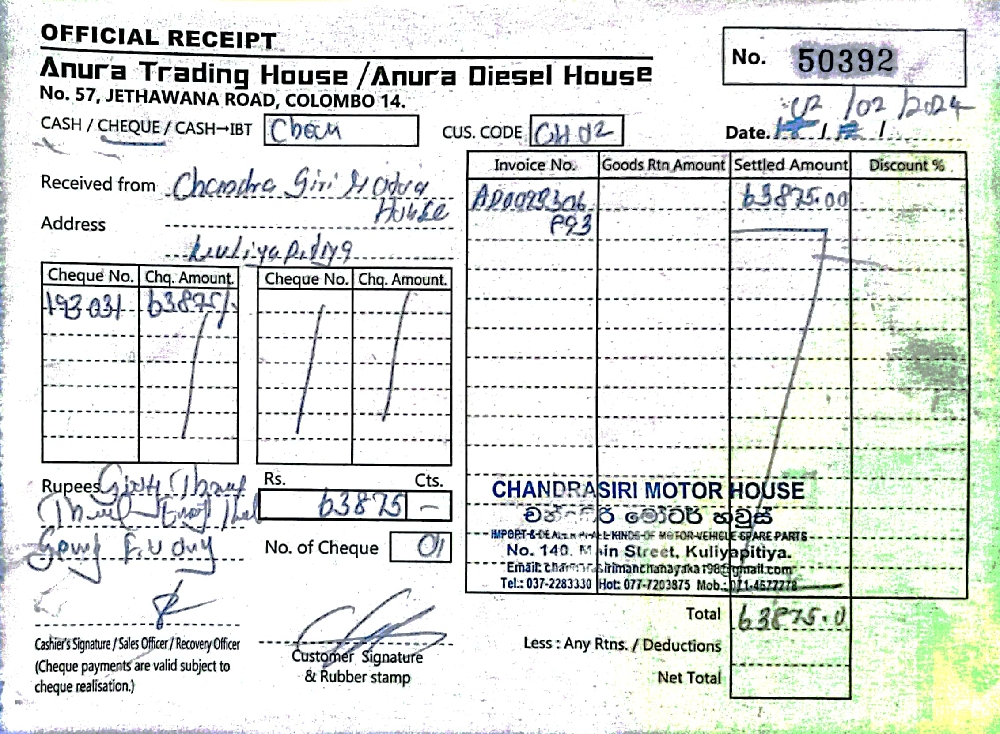 OFFICIAL RECEIPT
Anura Trading House / Anura Diesel House
No. 57, JETHAWANA ROAD, COLOMBO 14.
No. 50392
CASH / CHEQUE / CASH→IBT
CUS. CODE CH 02
Date. 02 / 02 / 2024
Received from Chandra Siri Motor House
Address Kuliyapitiya
Invoice No. Goods Rtn Amount Settled Amount Discount %
63875.00
Cheque No. Chq. Amount. Cheque No. Chq. Amount.
193031 63875/-
Rupees
Rs. Cts.
63875 —
No. of Cheque 01
CHANDRASIRI MOTOR HOUSE
චන්ද්‍රසිරි මෝටර් හවුස්
IMPORT & DEALER IN ALL KINDS OF MOTOR VEHICLE SPARE PARTS
No. 140, Main Street, Kuliyapitiya.
Tel.: 037-2283330 Hot: 077-7203875 Mob.: 071-4677778
Total 63875.0
Less : Any Rtns. / Deductions
Net Total
Cashier's Signature / Sales Officer / Recovery Officer
(Cheque payments are valid subject to
cheque realisation.)
Customer Signature
& Rubber stamp